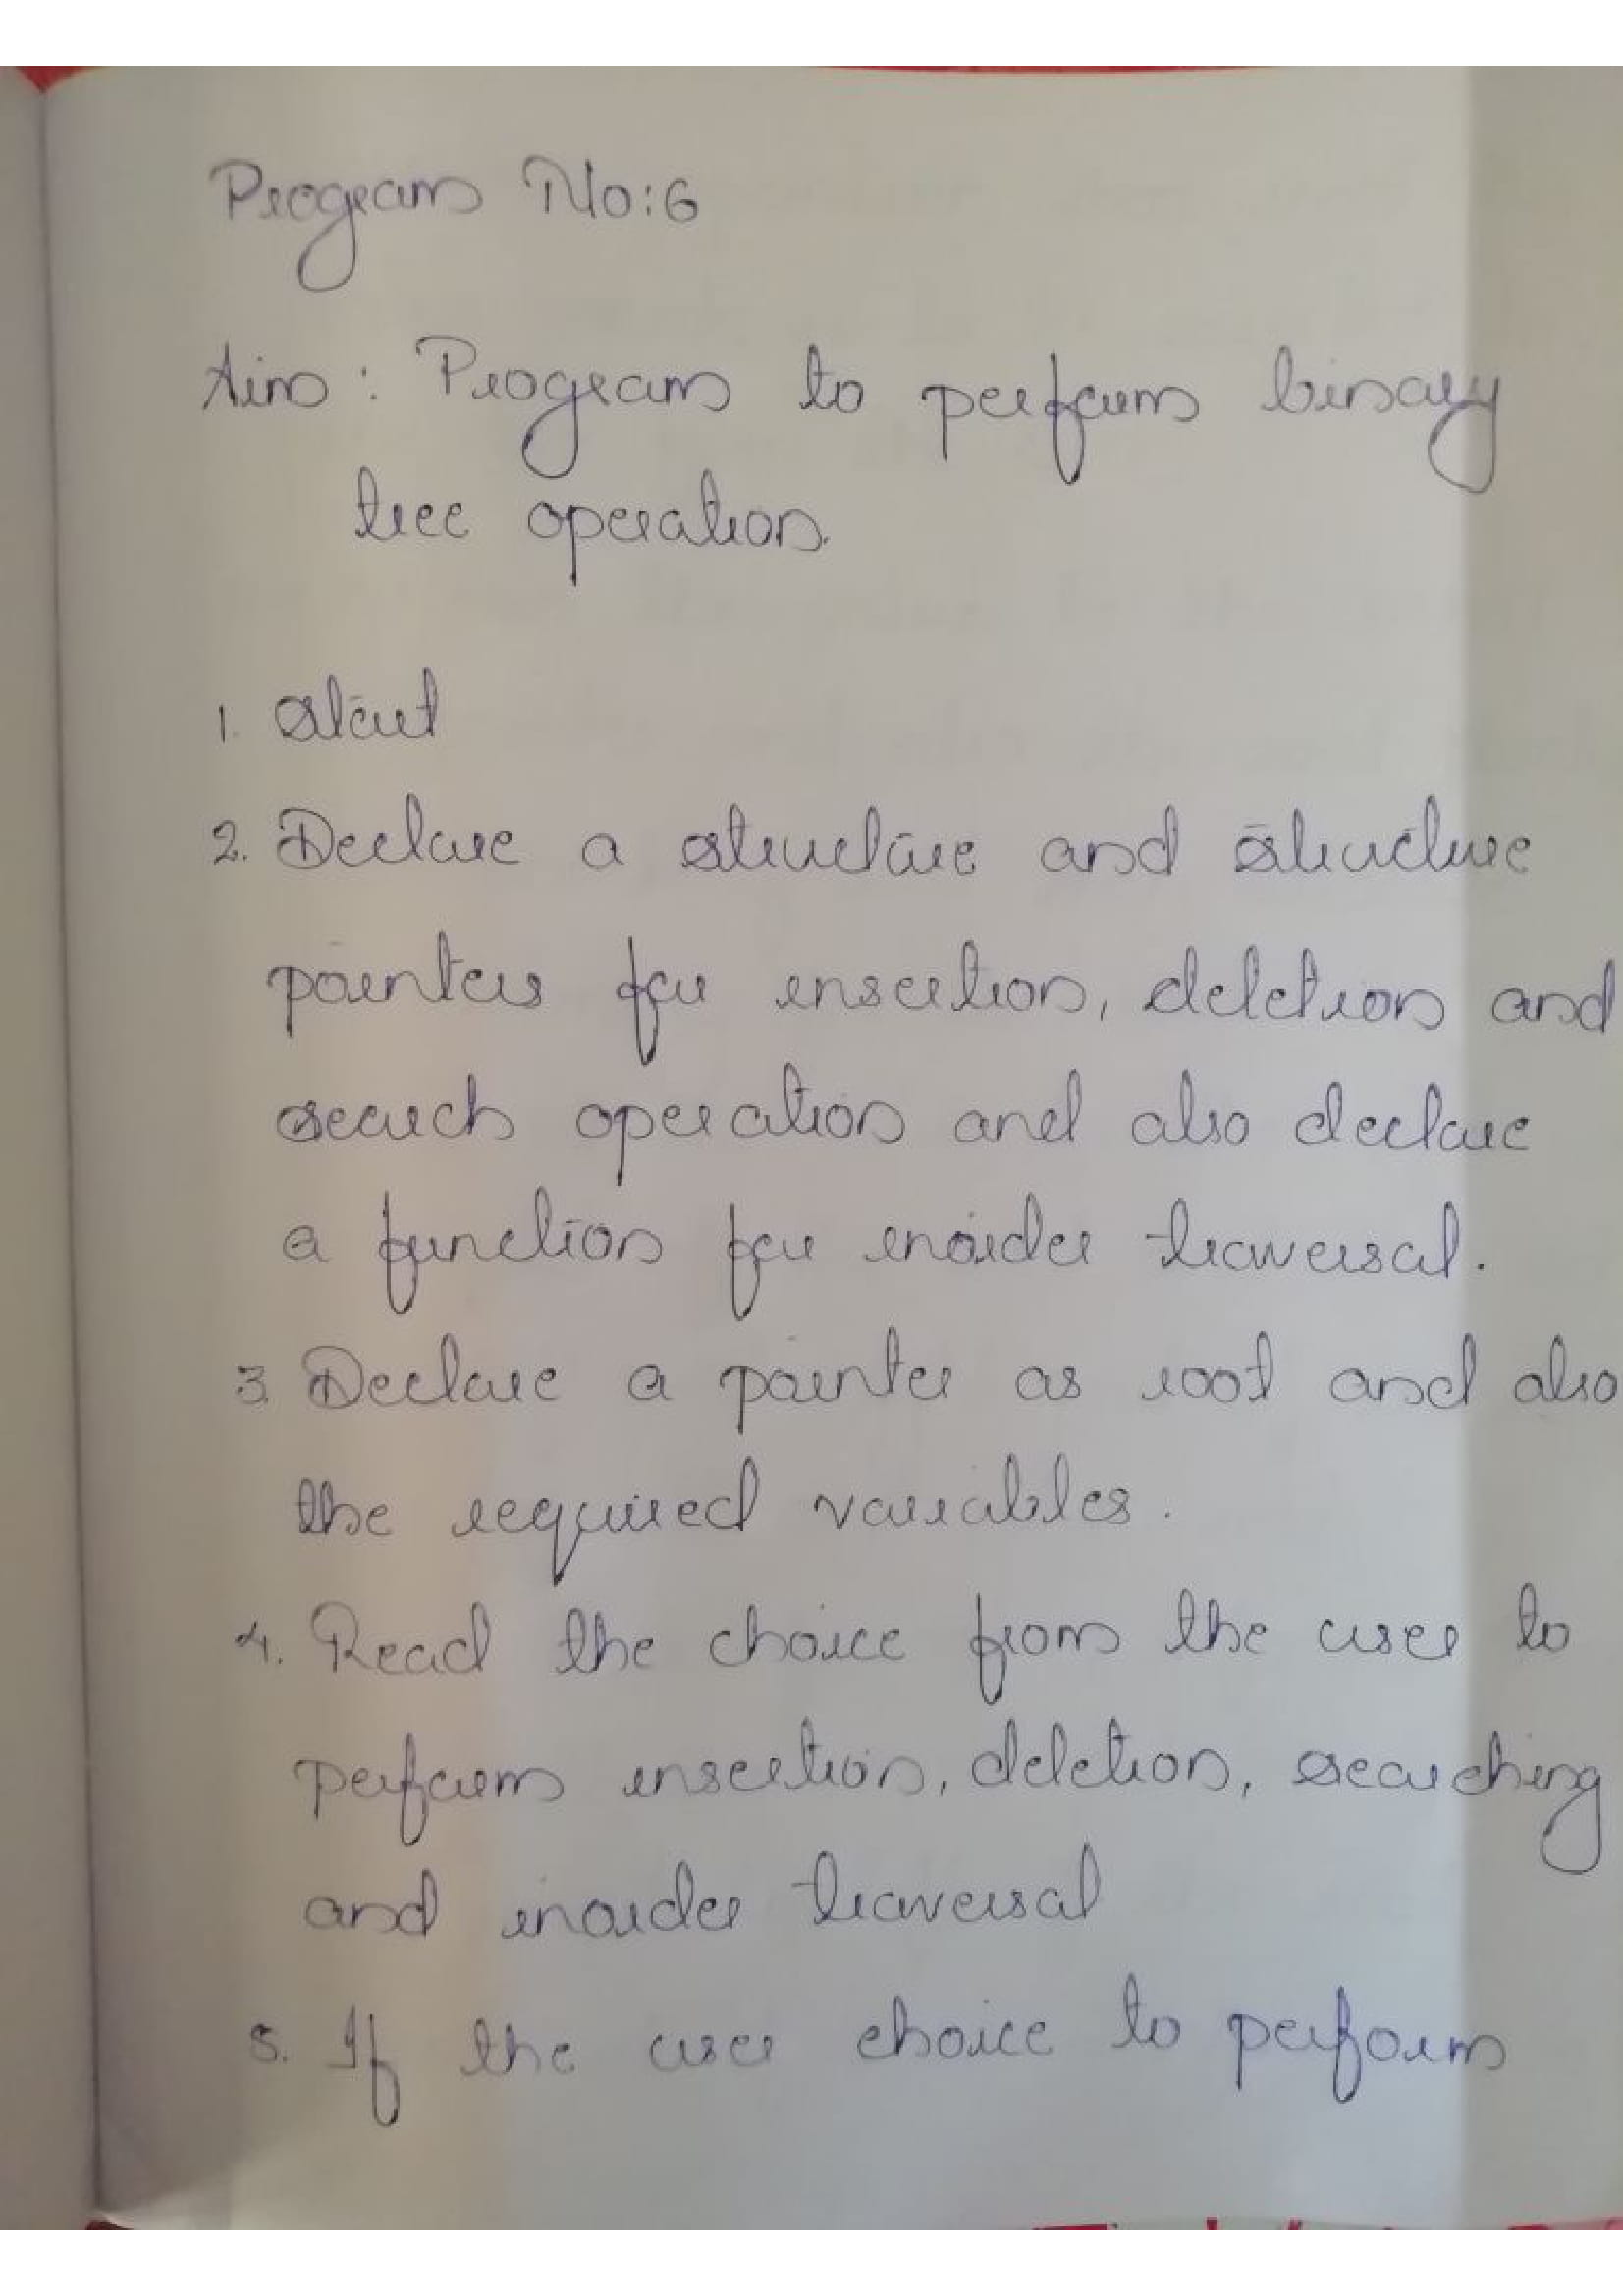 Program No:6
Aim : Program to perform binary
tree operation.
1. Start
2. Declare a structure and structure
pointers for insertion, deletion and
search operation and also declare
a function for inorder traversal.
3. Declare a pointer as root and also
the required variables.
4. Read the choice from the user to
perform insertion, deletion, searching
and inorder traversal
5. If the user choice to perform